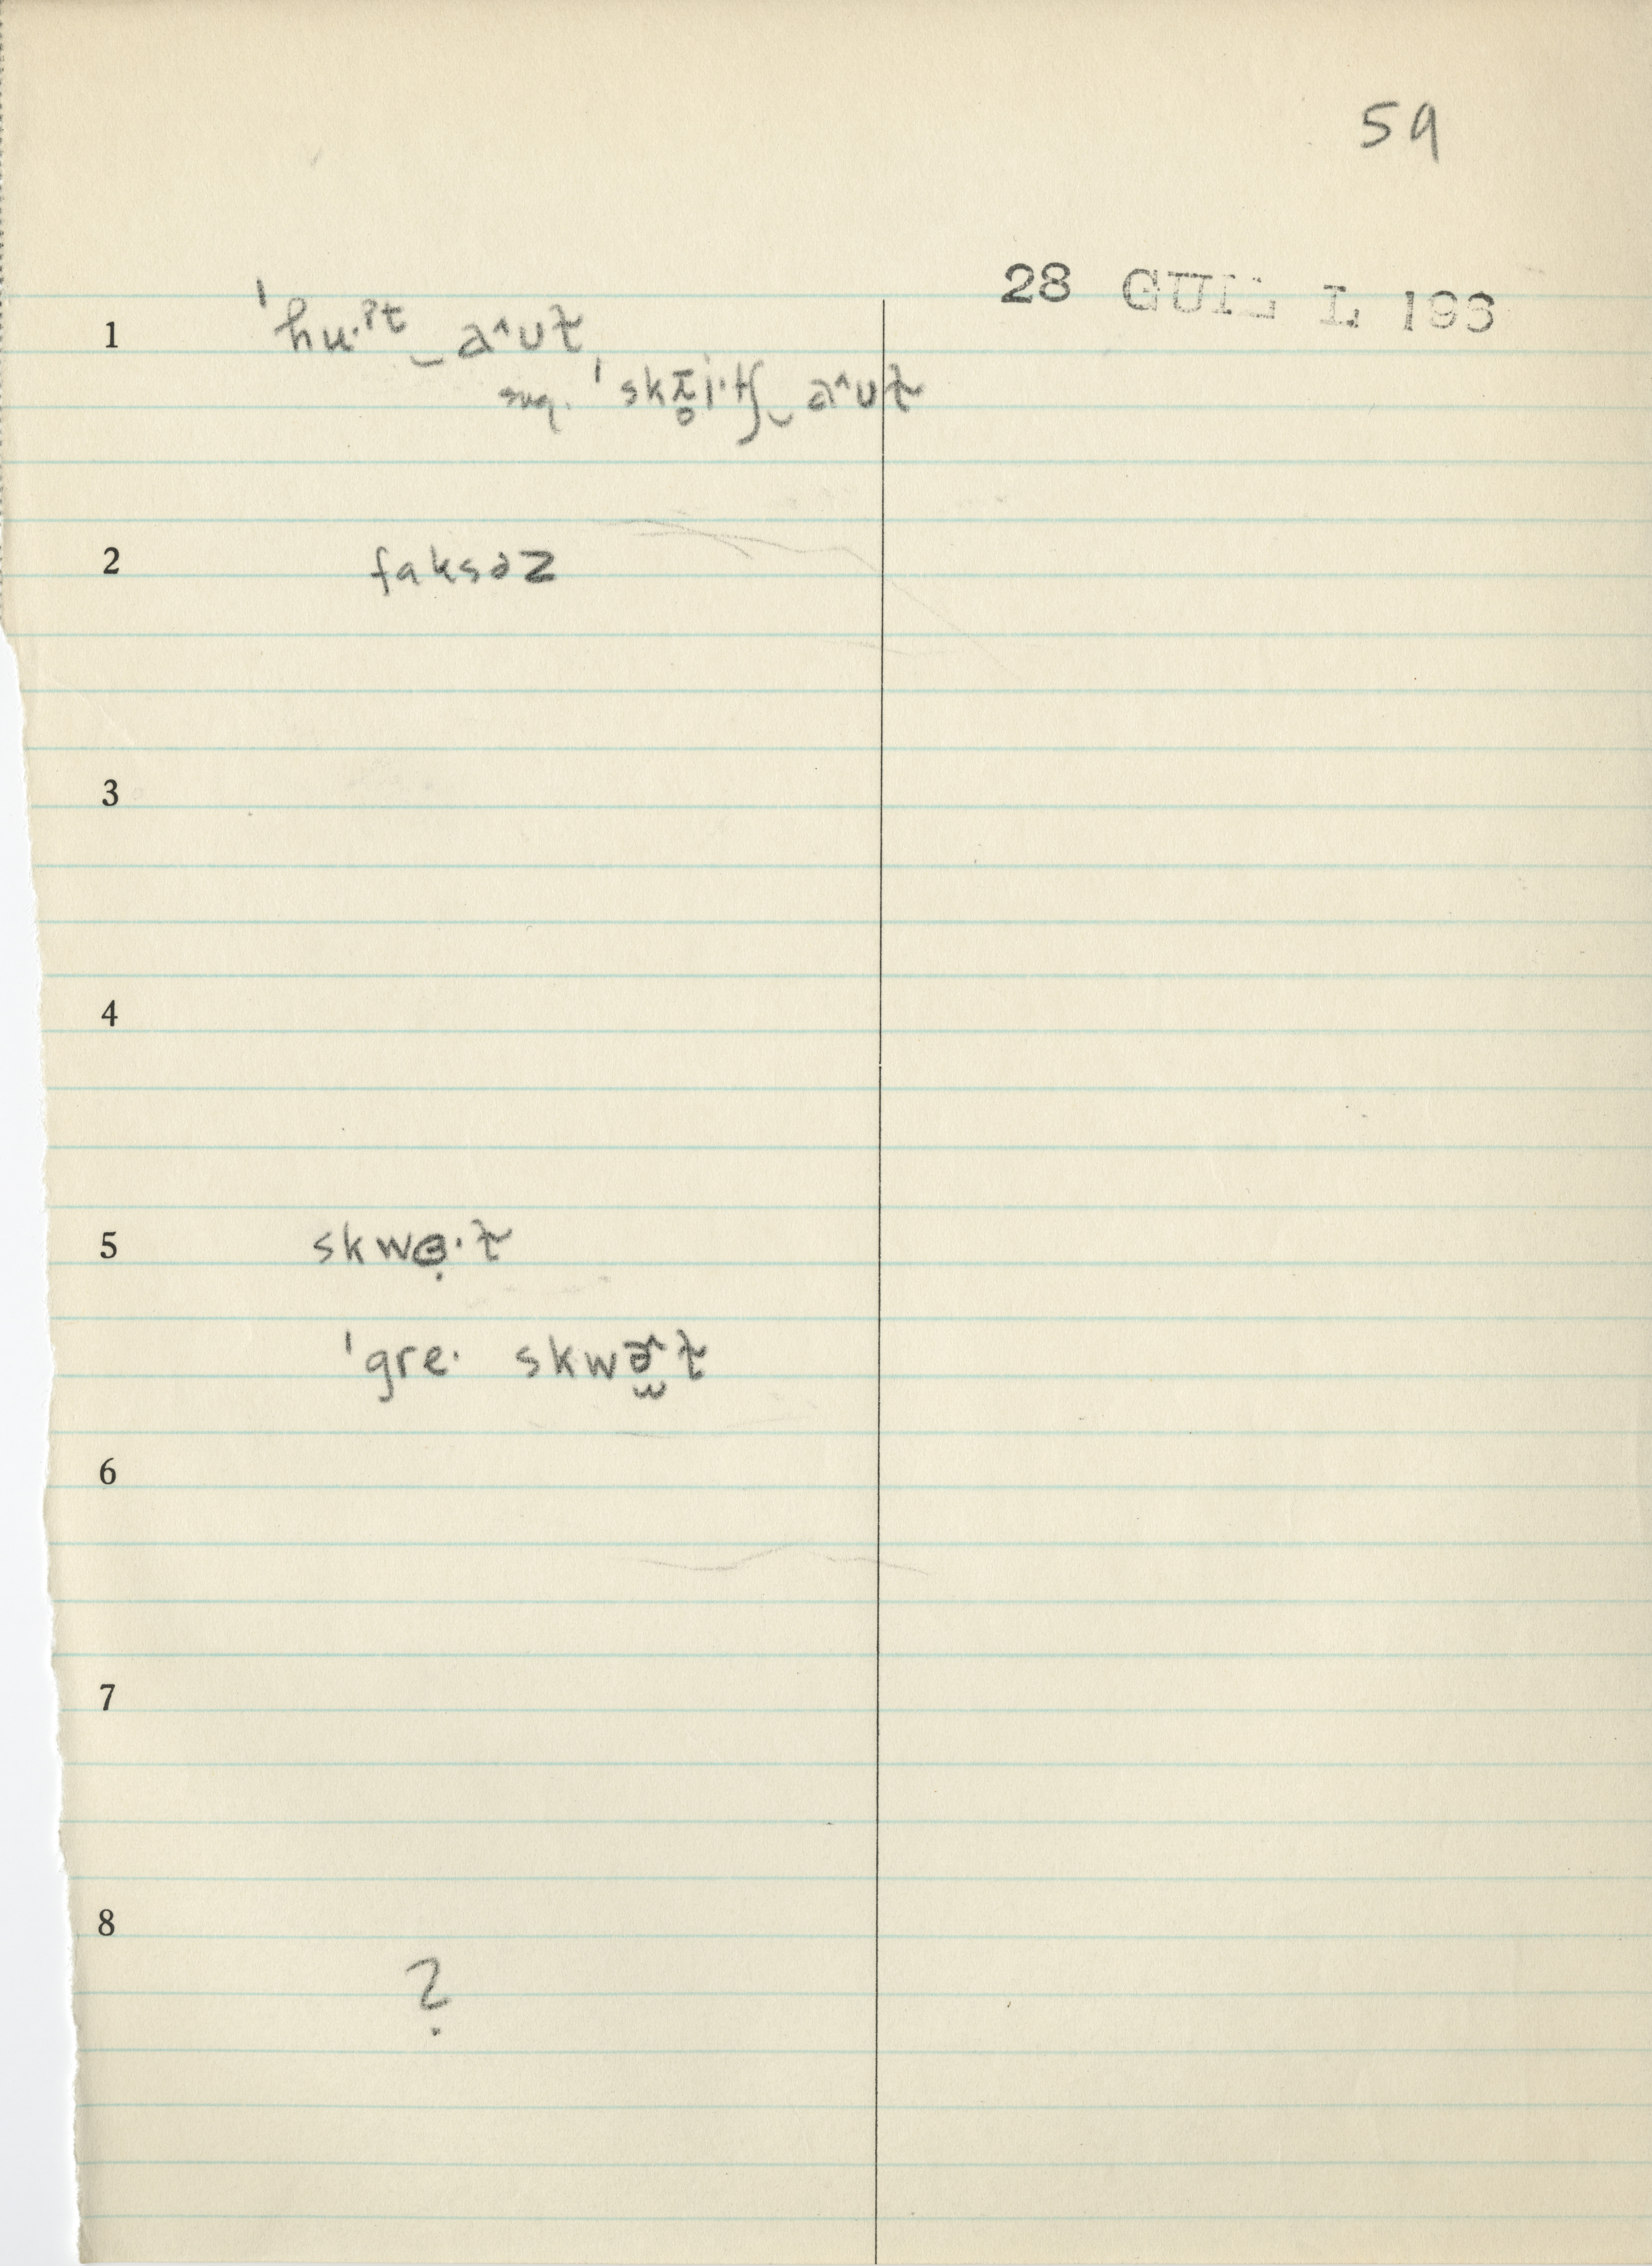 59
28 GUIL L 193
1 ˈhu·ˀt‿aˆut̬
sug. ˈskr̥i·tʃ‿aˆut̬
2 faksəz
3
4
5 skwɵ̣·t̬
ˈgre· skwɚˆt̬
6
7
8
?